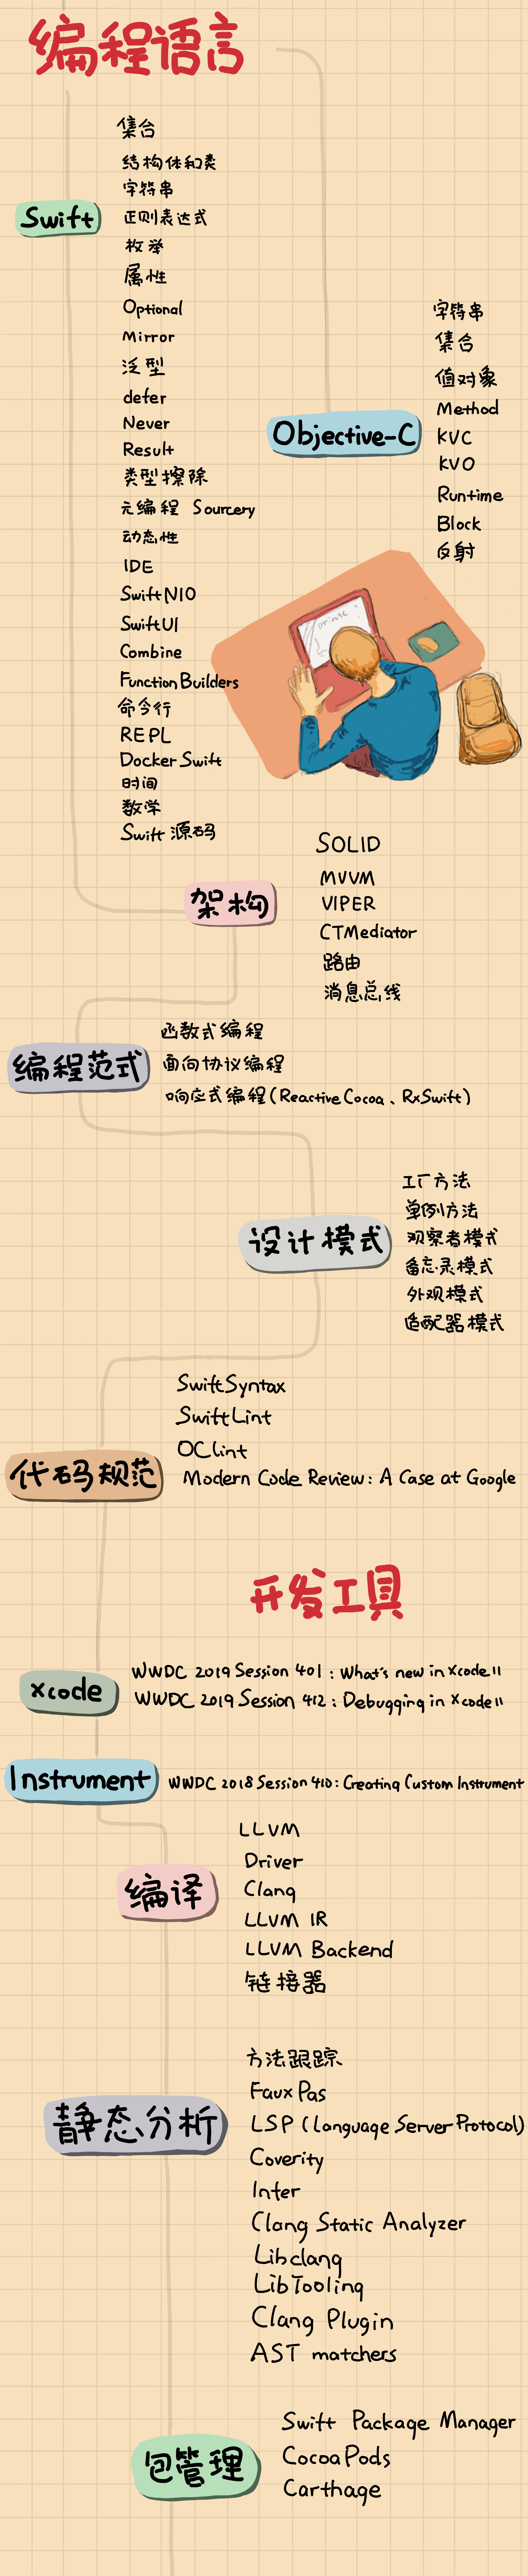 编程语言
Swift
集合
结构体和类
字符串
正则表达式
枚举
属性
Optional
Mirror
泛型
defer
Never
Result
类型擦除
元编程 Sourcery
动态性
IDE
SwiftNIO
SwiftUI
Combine
Function Builders
命令行
REPL
Docker Swift
时间
数学
Swift 源码
Objective-C
字符串
集合
值对象
Method
KVC
KVO
Runtime
Block
反射
架构
SOLID
MVVM
VIPER
CTMediator
路由
消息总线
编程范式
函数式编程
面向协议编程
响应式编程(ReactiveCocoa、RxSwift)
设计模式
工厂方法
单例方法
观察者模式
备忘录模式
外观模式
适配器模式
代码规范
SwiftSyntax
SwiftLint
OCLint
Modern Code Review: A Case at Google
开发工具
xcode
WWDC 2019 Session 401: What's new in Xcode 11
WWDC 2019 Session 412: Debugging in Xcode 11
Instrument
WWDC 2018 Session 410: Creating Custom Instrument
编译
LLVM
Driver
Clang
LLVM IR
LLVM Backend
链接器
静态分析
方法跟踪
Faux Pas
LSP (Language Server Protocol)
Coverity
Infer
Clang Static Analyzer
Libclang
LibTooling
Clang Plugin
AST matchers
包管理
Swift Package Manager
CocoaPods
Carthage